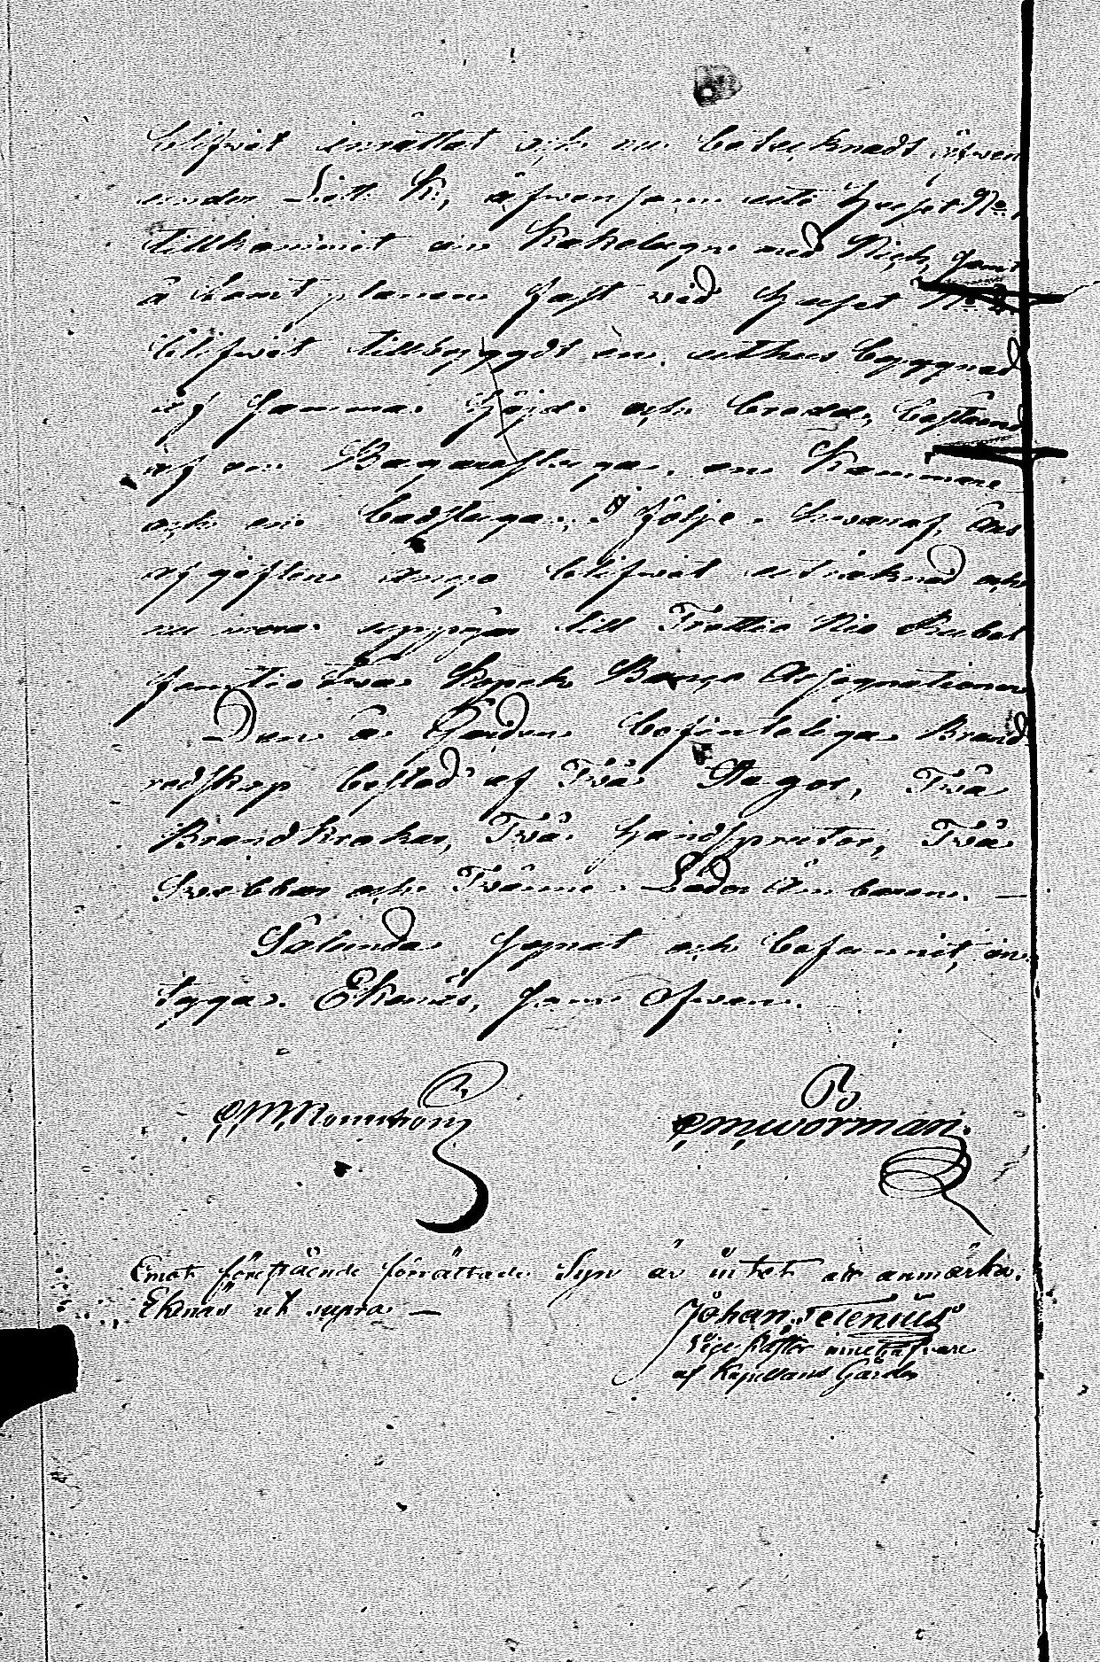 blifwit inrättat och nu betecknadt äfwen
under Litt K, äfwensom uti Huset No
tillkommit en Kakelugn med Rich, samt
å Tomtplanen fast wid Huset
blifwit tillbyggdt en uthus byggnad
af samma höjd och bredd, bestånd
af en Bagarestuga, en Kammare
och en badstuga, I följe hwaraf, Ans
afgiften ånyo blifwit uträknad och
nu mera uppgår till Trettio Nio Rubel
femtio Twå Kopek Banco Assignationer
Den å Gården befinteliga Brand
redskap bestod af Twå Stegor, Twå
Brandkrokar, Twå Handsprutor, Twå
Swabbar och Twänne Läder Ämbaren. —
Sålunda synat och befunnit, in
tygas. Ekenäs, som ofwan.
CMWorman.
Emot förestående förrättade Syn är intet att anmärka.
Ekenäs ut supra —
Johan Telenius
Vice Pastor innehafware
af Kapellans Gården